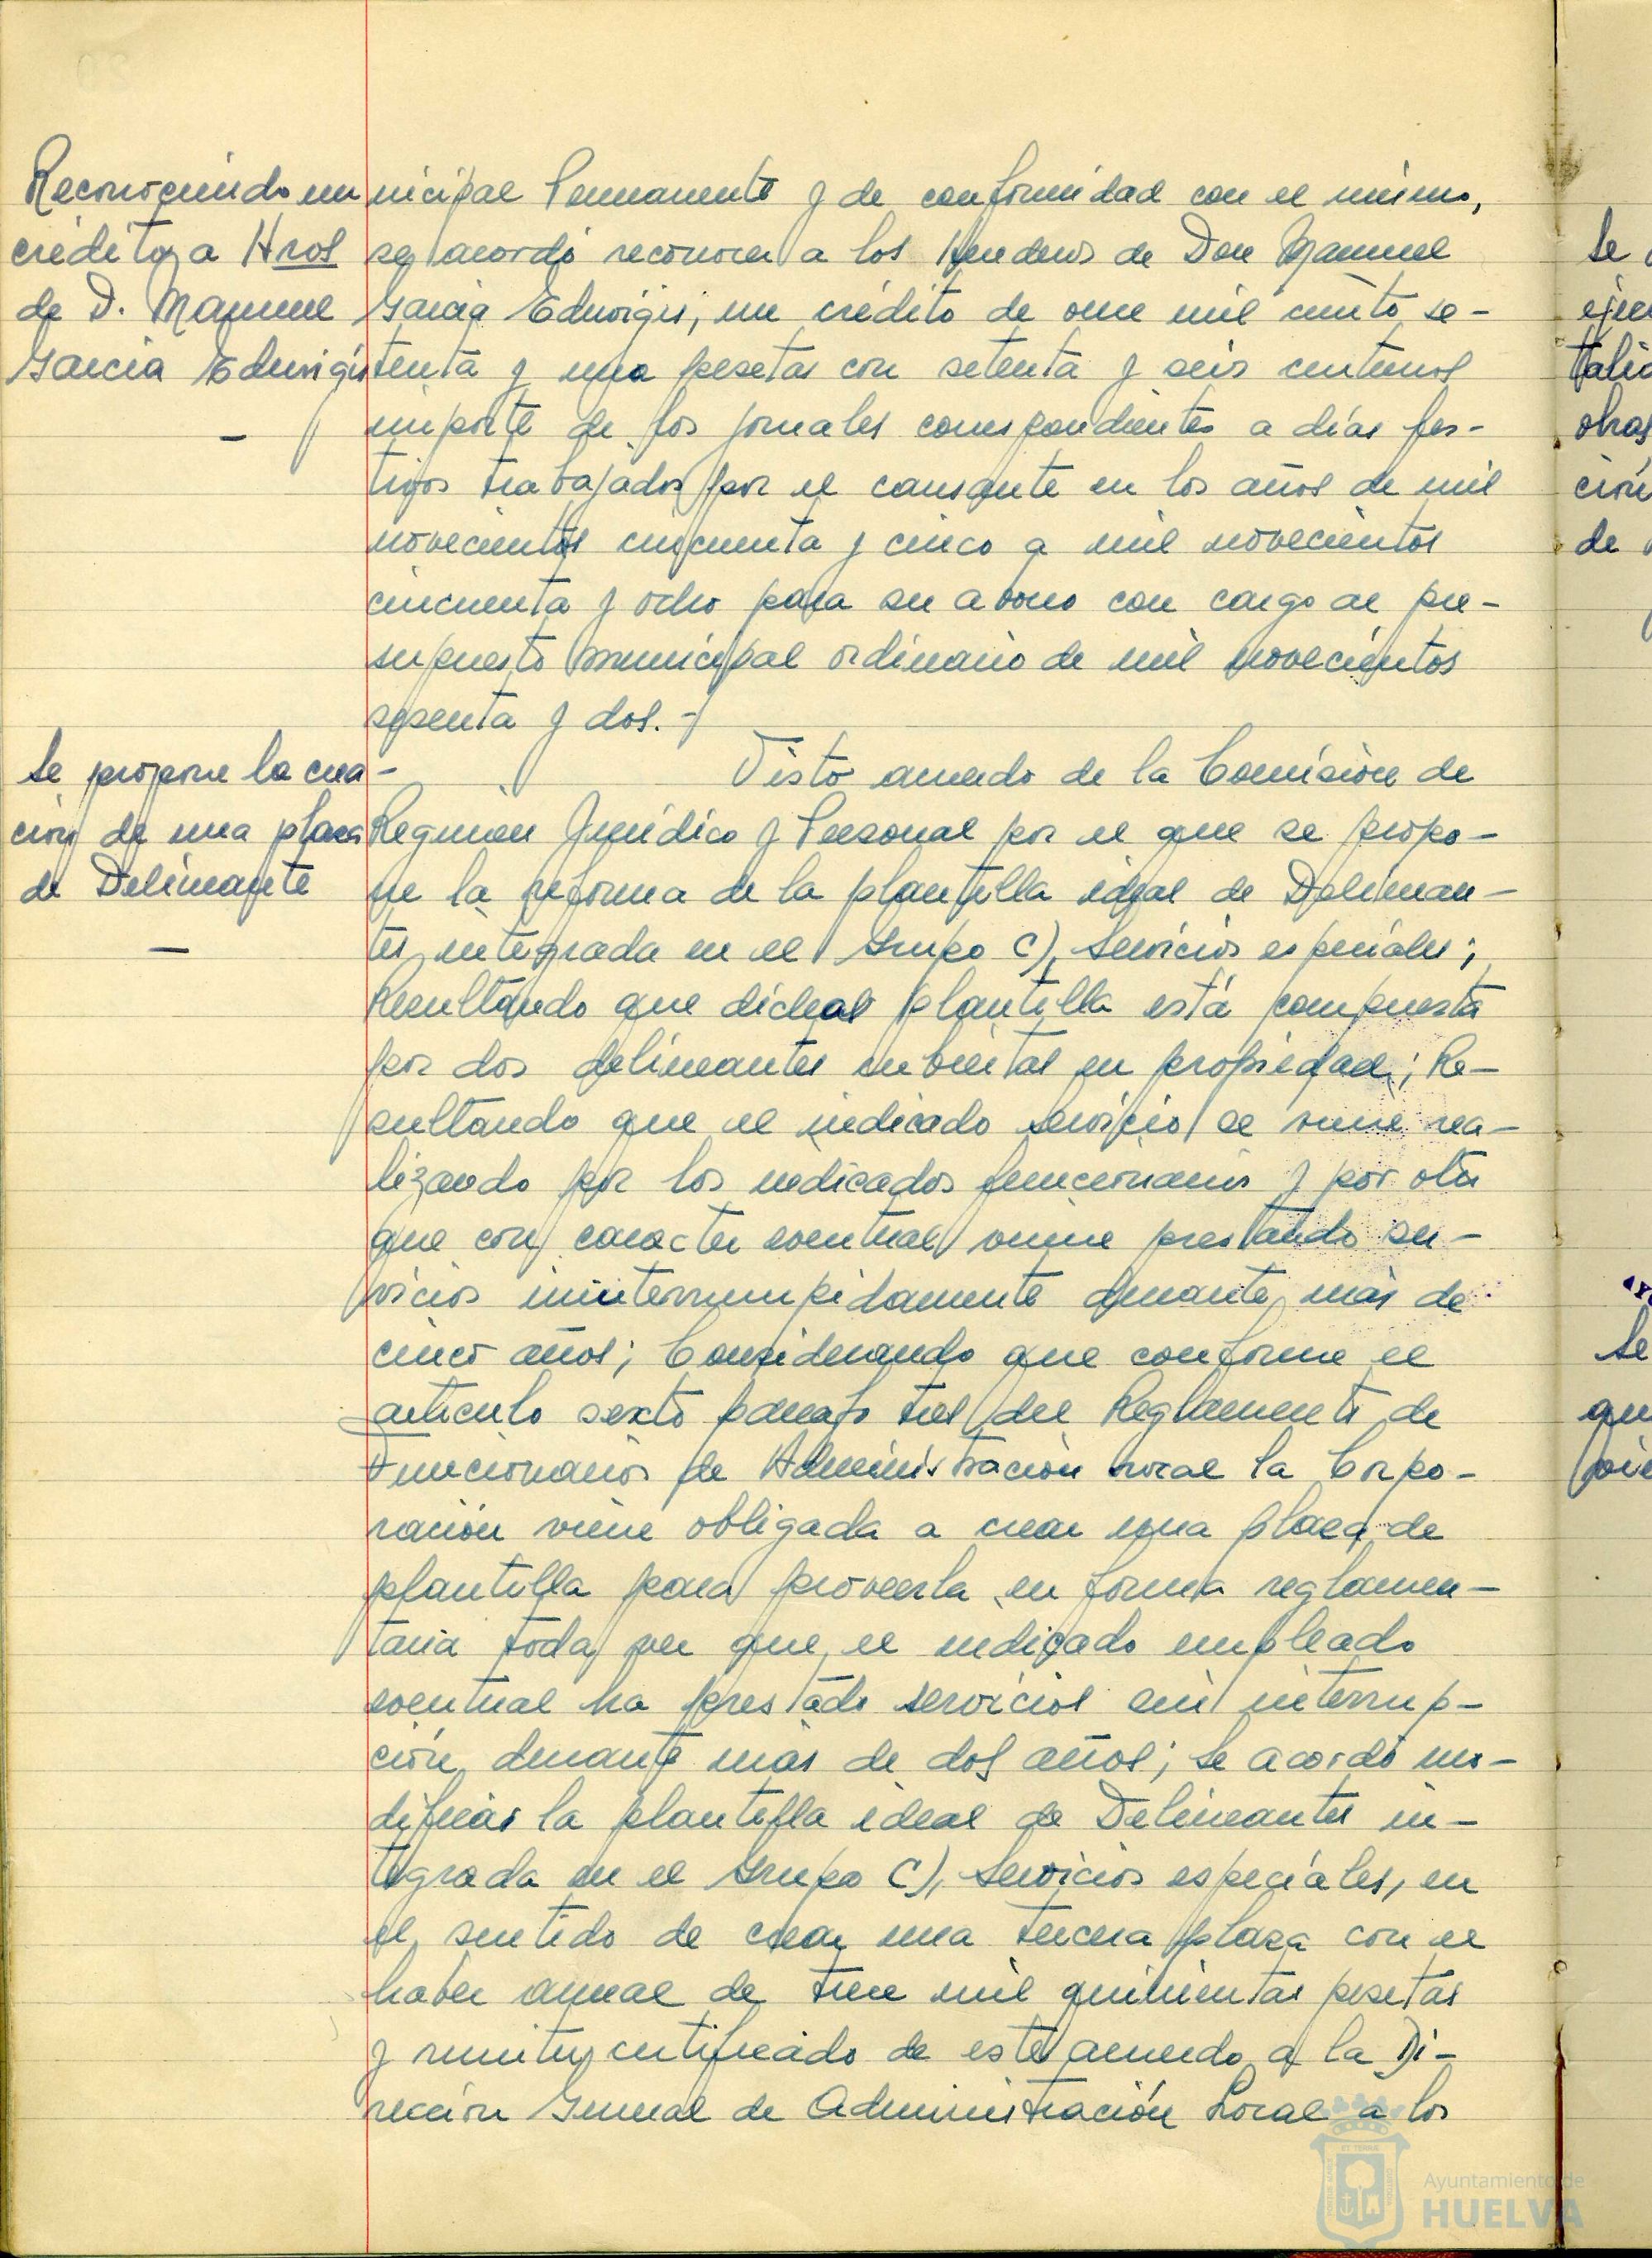 Reconociendo un
crédito a Hros
de D. Manuel
Garcia Eduvigis
-
nicipal Permanente y de conformidad con el mismo,
se acordó reconocer a los Herederos de Don Manuel
Garcia Eduvigis, un crédito de once mil ciento se-
tenta y una pesetas con setenta y seis centimos
importe de los jornales correspondientes a días fes-
tivos trabajados por el causante en los años de mil
novecientos cincuenta y cinco a mil novecientos
cincuenta y ocho para su abono con cargo al pre-
supuesto municipal ordinario de mil novecientos
sesenta y dos.-
Se propone la crea-
ción de una plaza
de Delineante
-
Visto acuerdo de la Comisión de
Regimen Jurídico y Personal por el que se propo-
ne la reforma de la plantilla ideal de Delinean-
tes integrada en el Grupo C), Servicios especiales;
Resultando que dicha plantilla está compuesta
por dos delineantes cubiertas en propiedad; Re-
sultando que el indicado servicio se viene rea-
lizando por los indicados funcionarios y por otro
que con caracter eventual viene prestando ser-
vicios ininterrumpidamente durante más de
cinco años; Considerando que conforme el
articulo sexto parrafo tres del Reglamento de
Funcionarios de Administración Local la Corpo-
ración viene obligada a crear una plaza de
plantilla para proveerla en forma reglamen-
taria toda vez que el indicado empleado
eventual ha prestado servicios sin interrup-
ción durante más de dos años; Se acordó mo-
dificar la plantilla ideal de Delineantes in-
tegrada en el Grupo C), Servicios especiales, en
el sentido de crear una tercera plaza con el
haber anual de trece mil quinientas pesetas
y remitir certificado de este acuerdo a la Di-
rección General de Administración Local a los
Se
obras
ción
de
Se
Ayuntamiento de
HUELVA